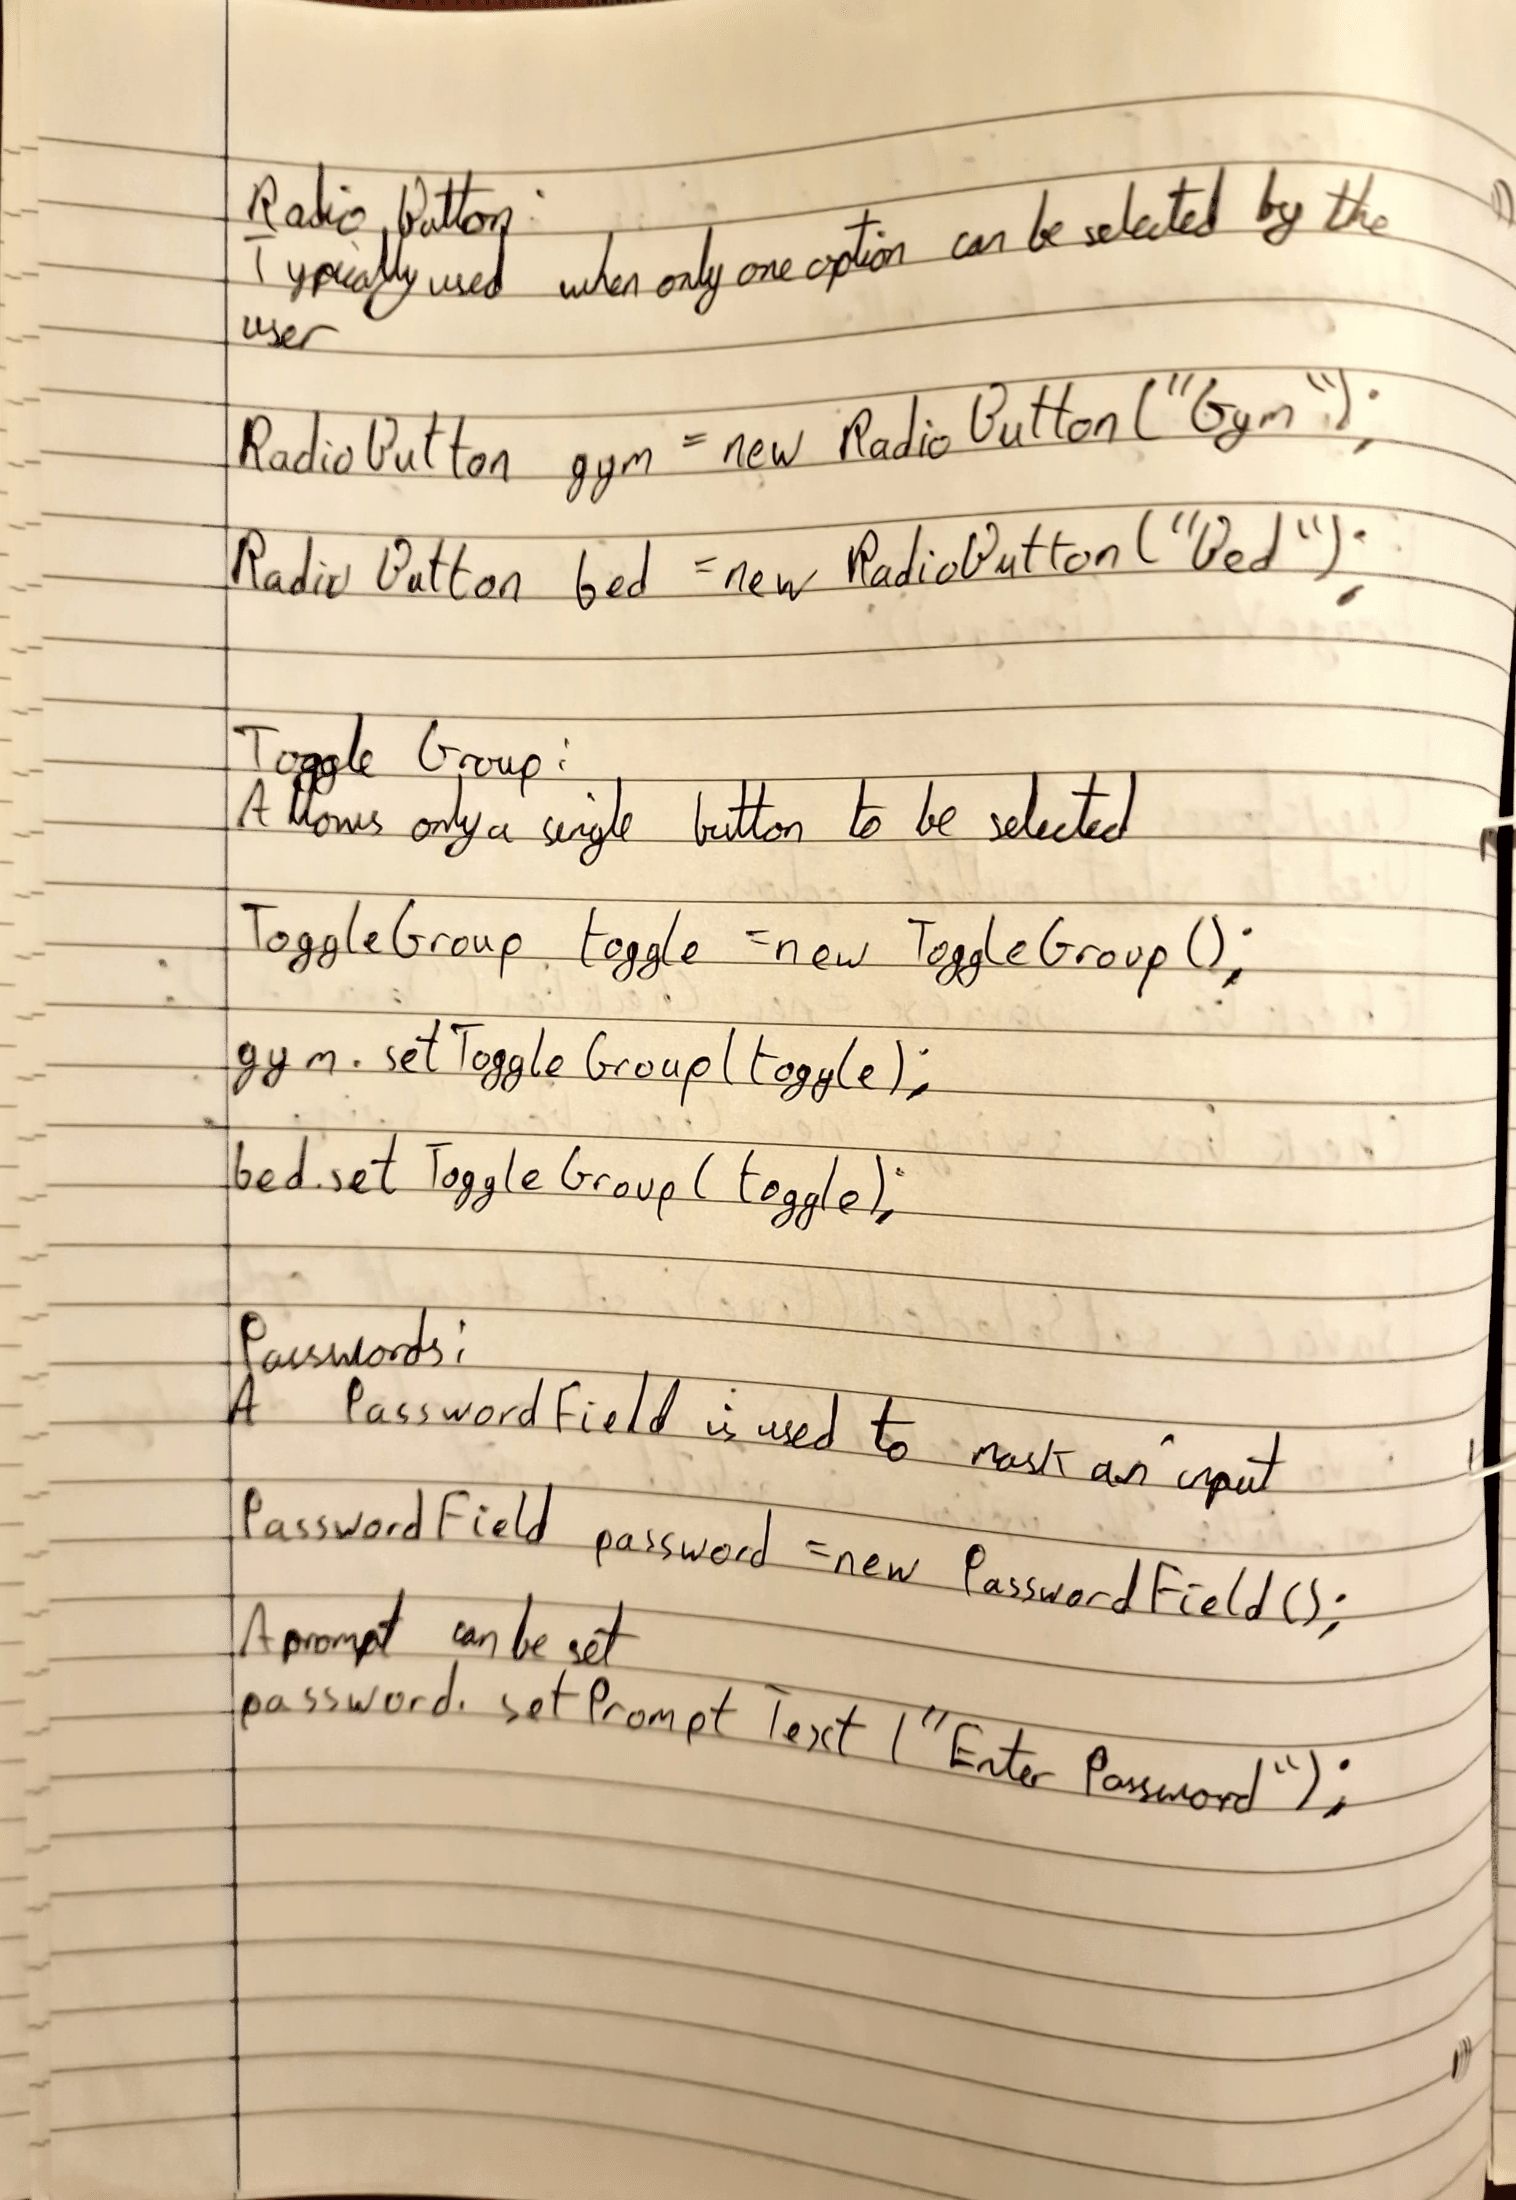 Radio Button:
Typically used when only one option can be selected by the
user
RadioButton gym = new RadioButton("Gym");
RadioButton bed = new RadioButton("Bed");
Toggle Group:
Allows only a single button to be selected
ToggleGroup toggle = new ToggleGroup();
gym.setToggleGroup(toggle);
bed.setToggleGroup(toggle);
Passwords:
A PasswordField is used to mask an input
PasswordField password = new PasswordField();
A prompt can be set
password.setPromptText("Enter Password");